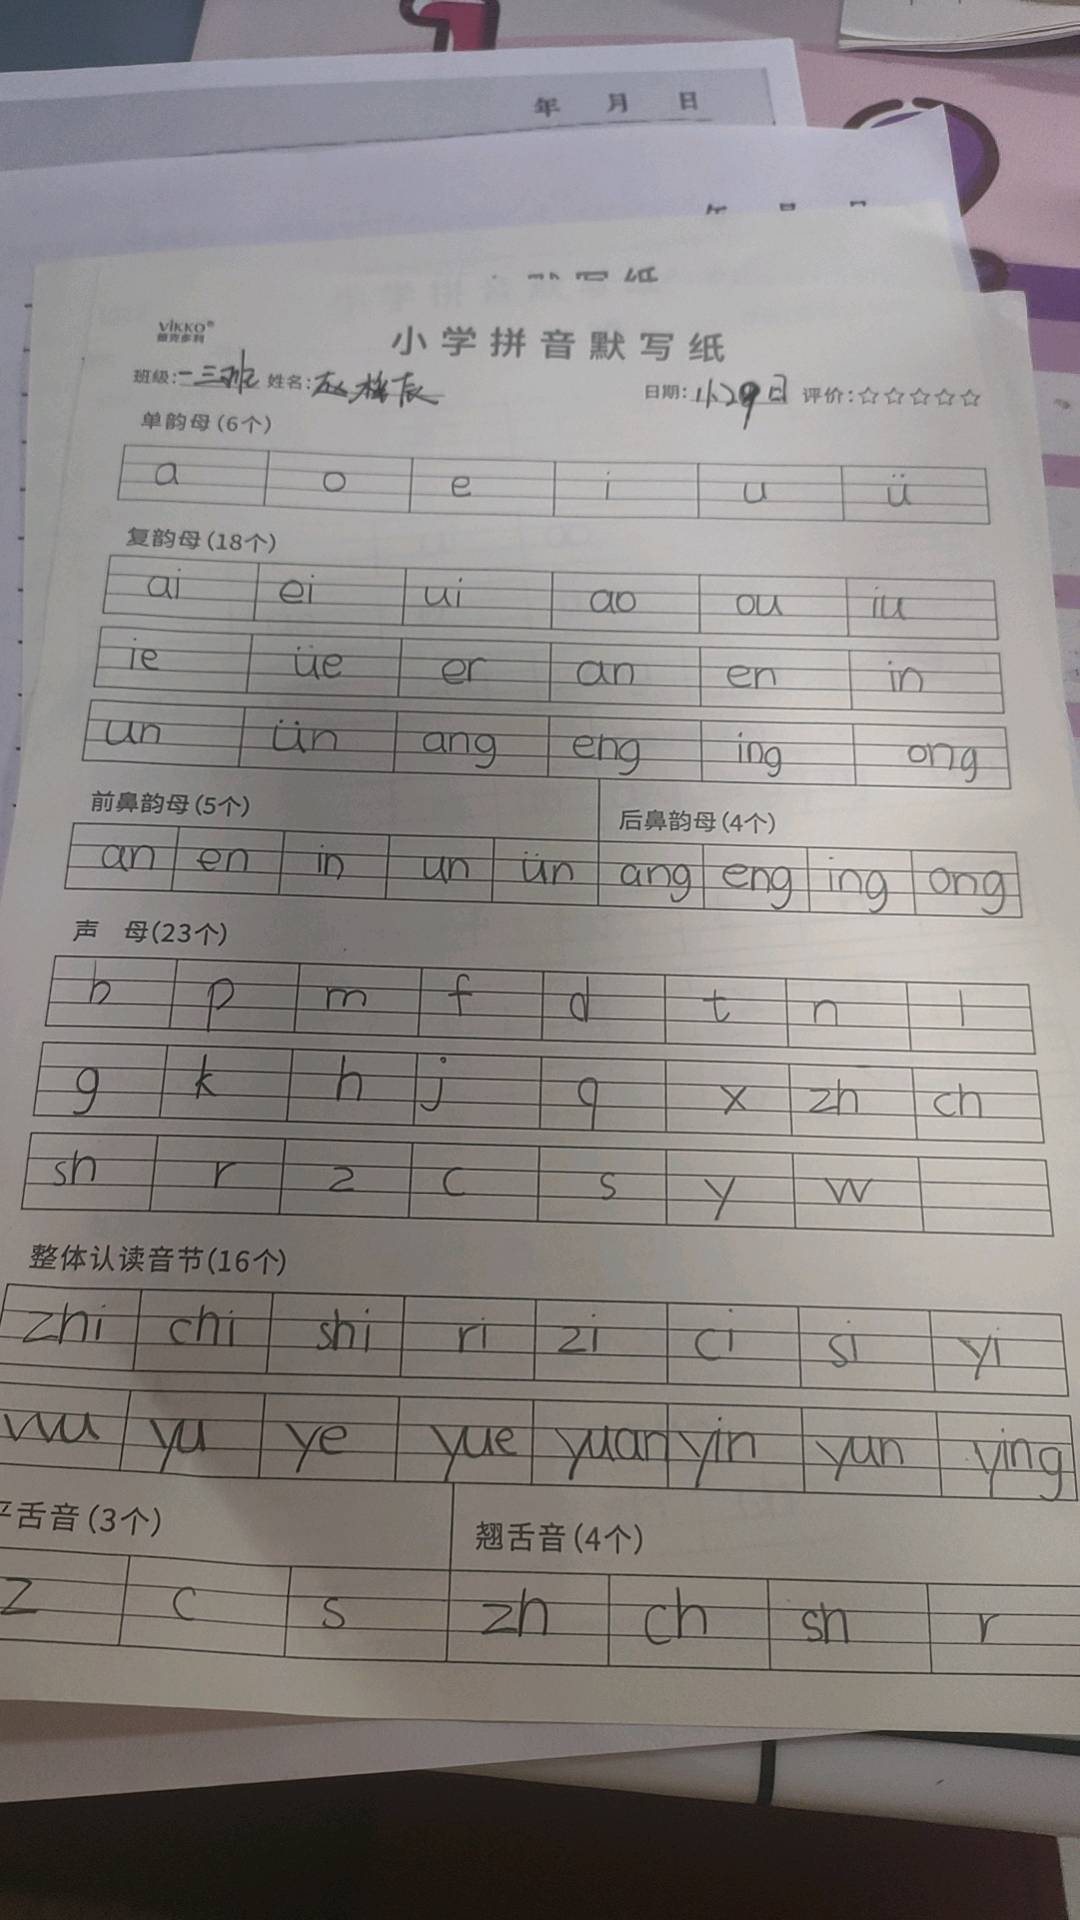 年 月 日
小学拼音默写纸
VIKKO®
班级:一三班 姓名: 日期: 29日 评价:☆☆☆☆☆
单韵母(6个)
a o e i u ü
复韵母(18个)
ai ei ui ao ou iu
ie üe er an en in
un ün ang eng ing ong
前鼻韵母(5个) 后鼻韵母(4个)
an en in un ün ang eng ing ong
声 母(23个)
b p m f d t n l
g k h j q x zh ch
sh r z c s y w
整体认读音节(16个)
zhi chi shi ri zi ci si yi
wu yu ye yue yuan yin yun ying
平舌音(3个) 翘舌音(4个)
z c s zh ch sh r